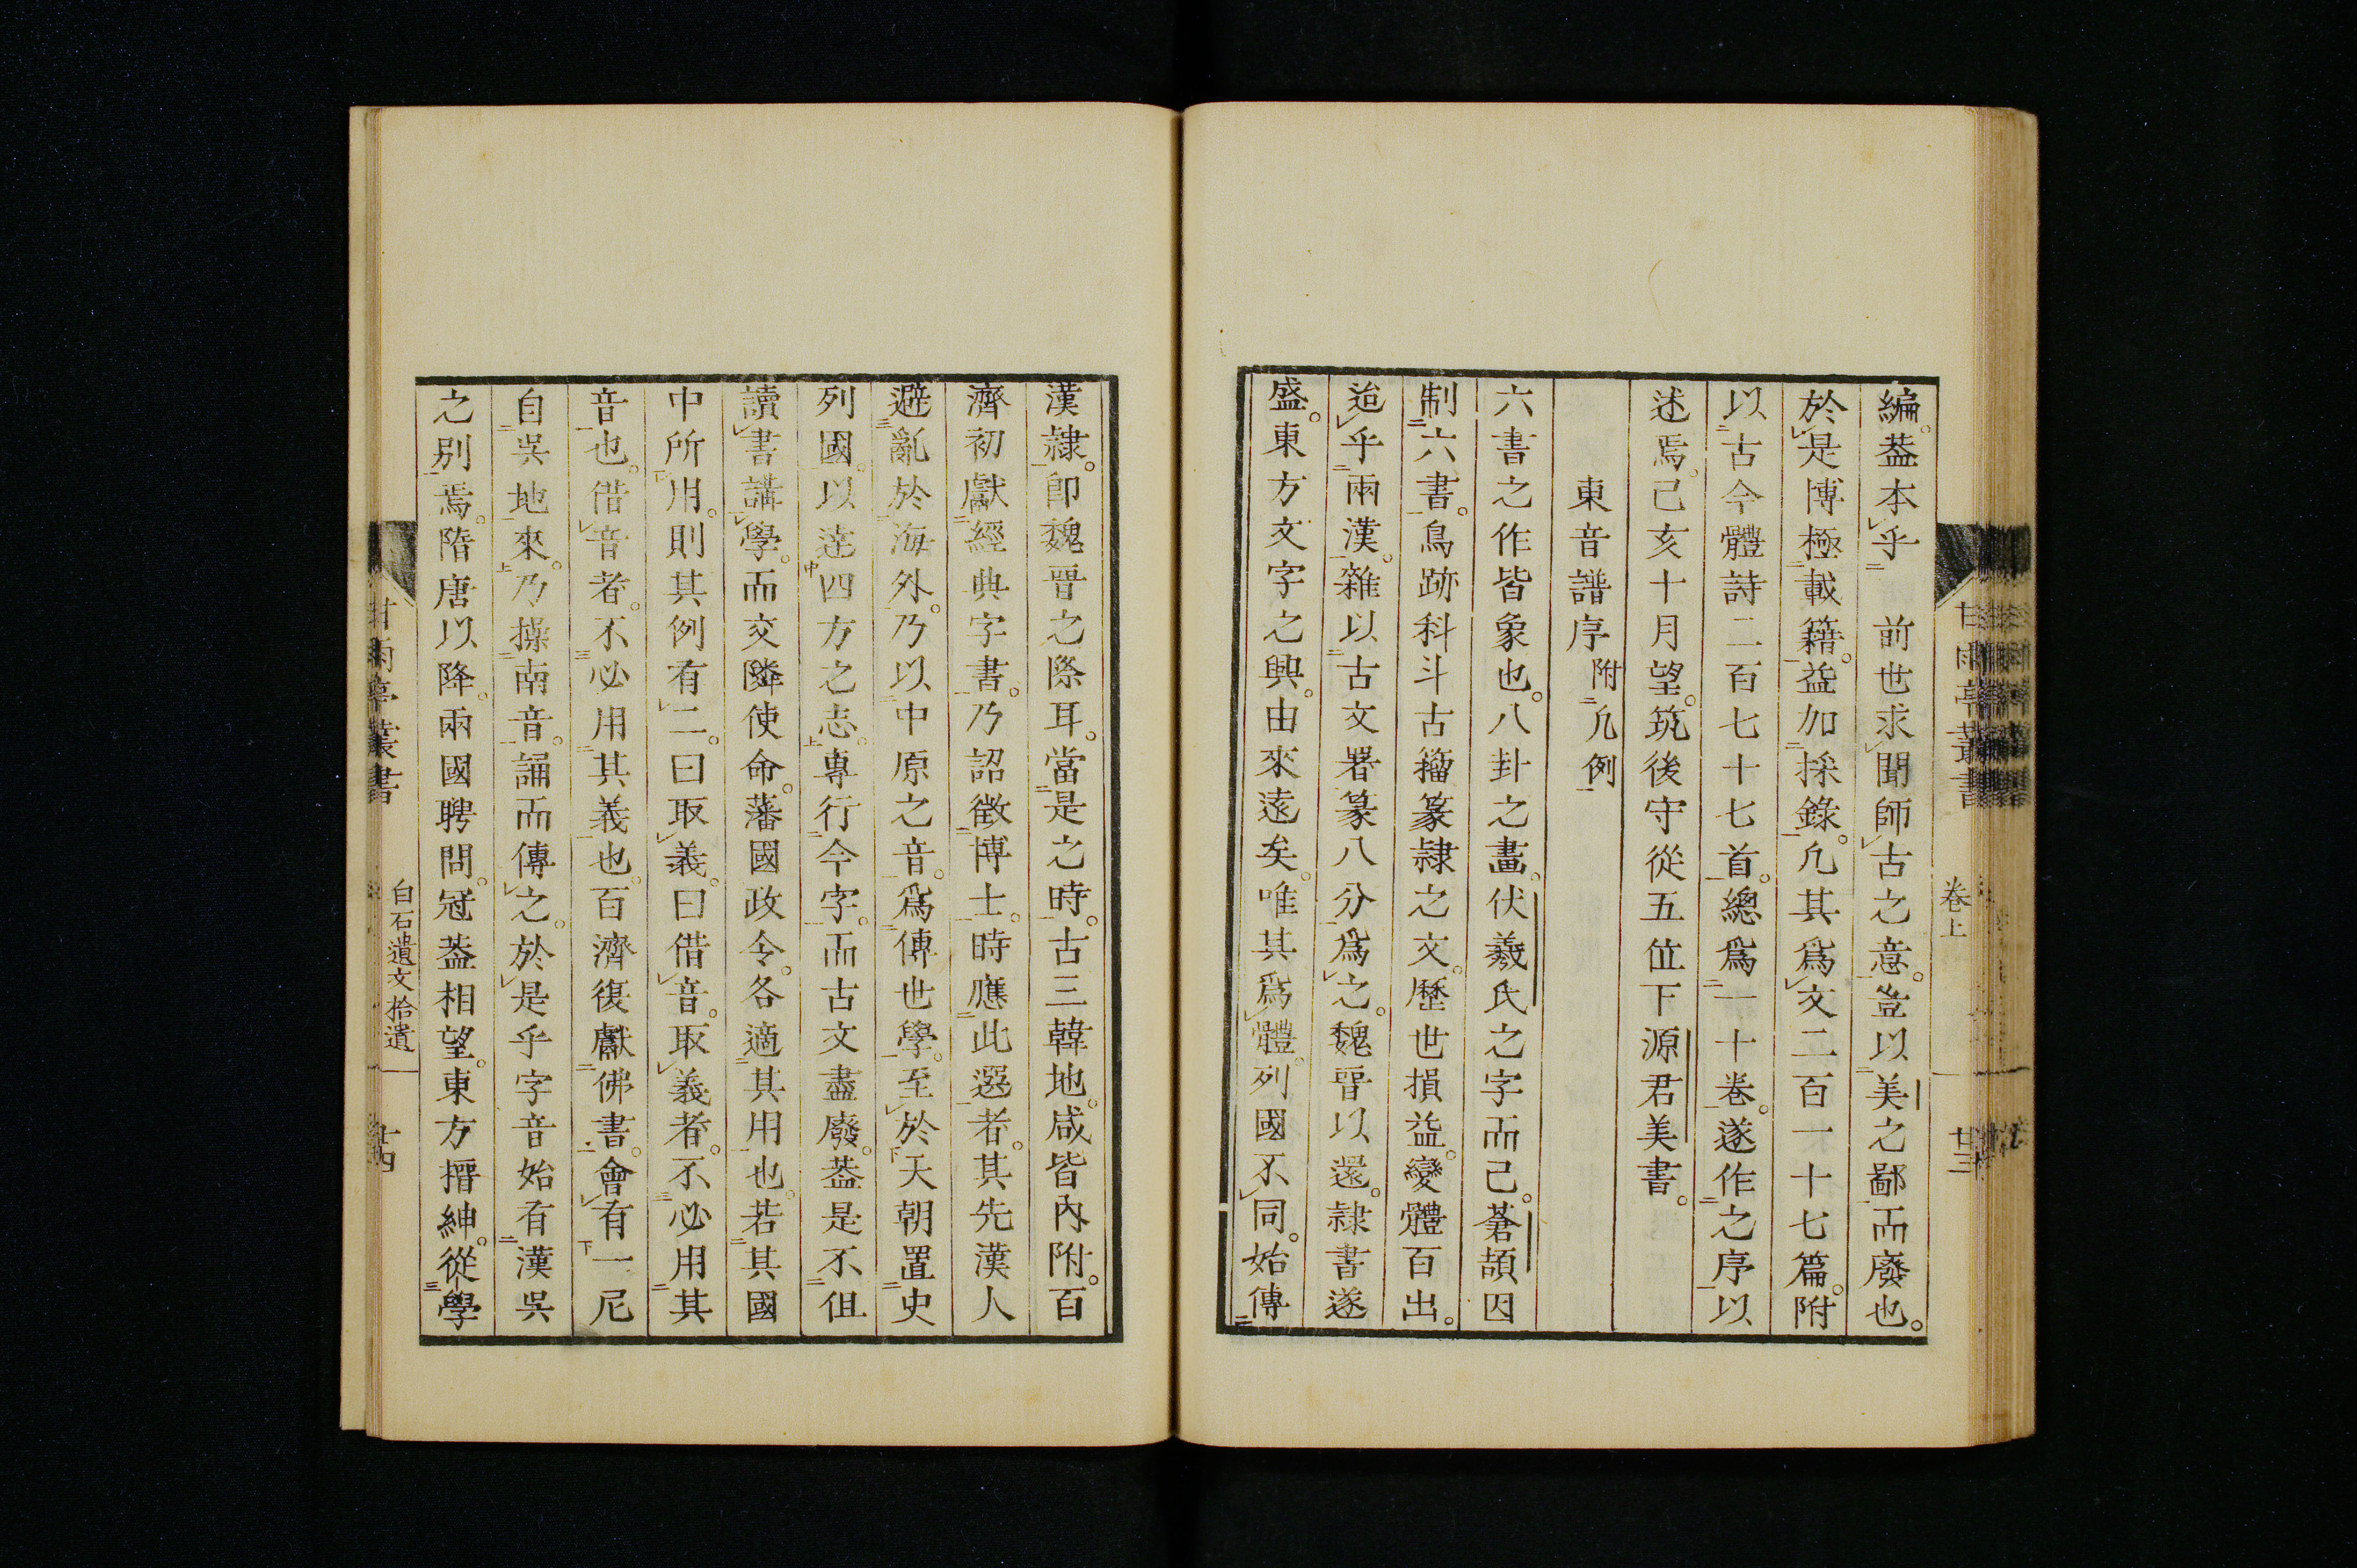 編。葢本乎　前世求聞師古之意。豈以美之鄙而廢也。
於是博極載籍。益加採錄。凡其爲文二百一十七篇。附
以古今體詩二百七十七首。總爲一十卷。遂作之序以
述焉。己亥十月望。筑後守從五位下源君美書。
東音譜序附凡例
六書之作皆象也。八卦之畫。伏羲氏之字而已。蒼頡因
制六書。鳥跡科斗古籀篆隸之文。歷世損益。變體百出。
迨乎兩漢。雜以古文署篆八分爲之。魏晉以還。隸書遂
盛。東方文字之興。由來遠矣。唯其爲體。列國不同。始傳
漢隸。卽魏晉之際耳。當是之時。古三韓地。咸皆內附。百
濟初獻經典字書。乃詔徵博士。時應此選者。其先漢人
避亂於海外。乃以中原之音。爲傳世學。至於天朝置史
列國。以達四方之志。專行今字。而古文盡廢。葢是不但
讀書講學。而交隣使命。藩國政令。各適其用也。若其國
中所用。則其例有二。曰取義。曰借音。取義者。不必用其
音也。借音者。不必用其義也。百濟復獻佛書。會有一尼
自吳地來。乃操南音。誦而傳之。於是乎字音始有漢吳
之別焉。隋唐以降。兩國聘問。冠葢相望。東方搢紳。從學
甘雨亭叢書　卷上　廿三
甘雨亭叢書　白石遺文拾遺　廿四